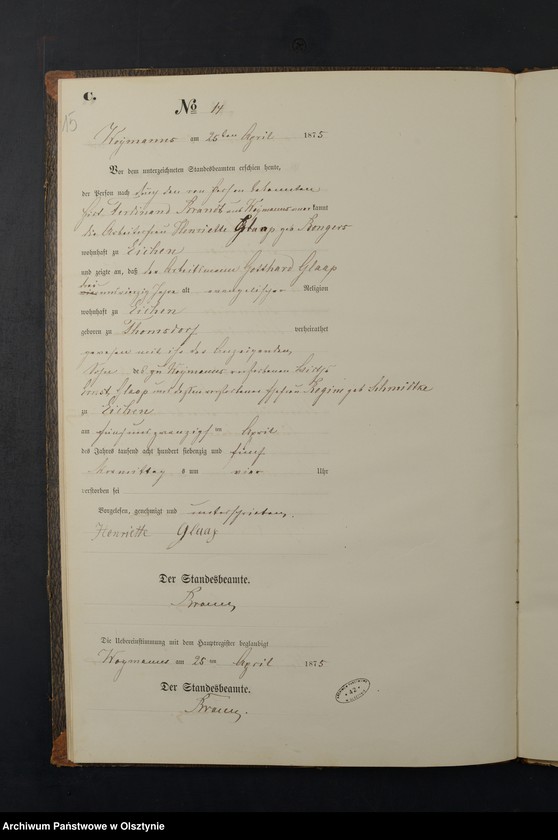 C.
15
No 14
Woymanns am 26ten April 1875
Vor dem unterzeichneten Standesbeamten erschien heute,
der Person nach durch den von Person bekannten
Ferdinand Brandt aus Woymanns anerkannt
die Arbeiterfrau Henriette Glaap geb Rengers
wohnhaft zu Eichen
und zeigte an, daß der Arbeitsmann Gotthard Glaap
drei
undvierzig Jahre alt evangelischer Religion
wohnhaft zu Eichen
geboren zu Thomsdorf verheirathet
gewesen mit ihr der Anzeigenden,
Sohn des zu Woymanns verstorbenen
Ernst Glaap und dessen verstorbene Ehefrau Regine geb Schmittke
zu Eichen
am fünfundzwanzigsten April
des Jahres tausend acht hundert siebenzig und fünf
Vormittags um vier Uhr
verstorben sei
Vorgelesen, genehmigt und unterschrieben.
Henriette Glaap
Der Standesbeamte.
Die Uebereinstimmung mit dem Hauptregister beglaubigt
Woymanns am 26ten April 1875
Der Standesbeamte.
Archiwum Państwowe w Olsztynie